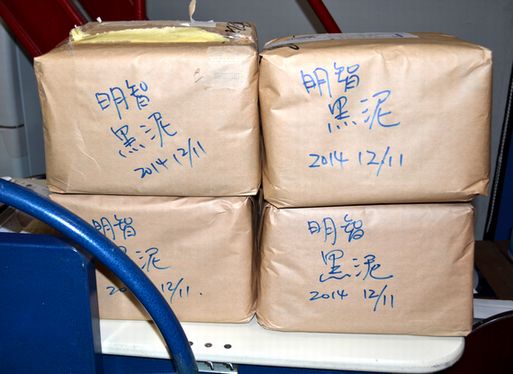 明智
黑泥
2014 12/11
明智
黑泥
2014 12/11
明智
黑泥
12/11.
明智
黑泥
2014 12/11